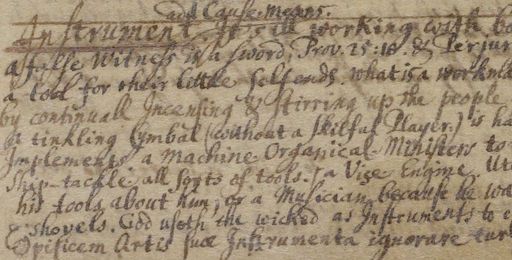 add Cause. Means.
Instrument. It is ill working with
a false Witness is a sword Prov. 25:18. &
a tool for their little self ends. what is a
by continuall Incensing & stirring up the people
a tinkling Cymbal (without a skilful Player.) is
Implements a Machine Organical Ministers to
Ship-tackle all sorts of tools. a Vise Engine.
his tools about him, or a Musician because he
shovels. God useth the wicked as Instruments to
Opificem Artis suæ Instrumenta ignorare